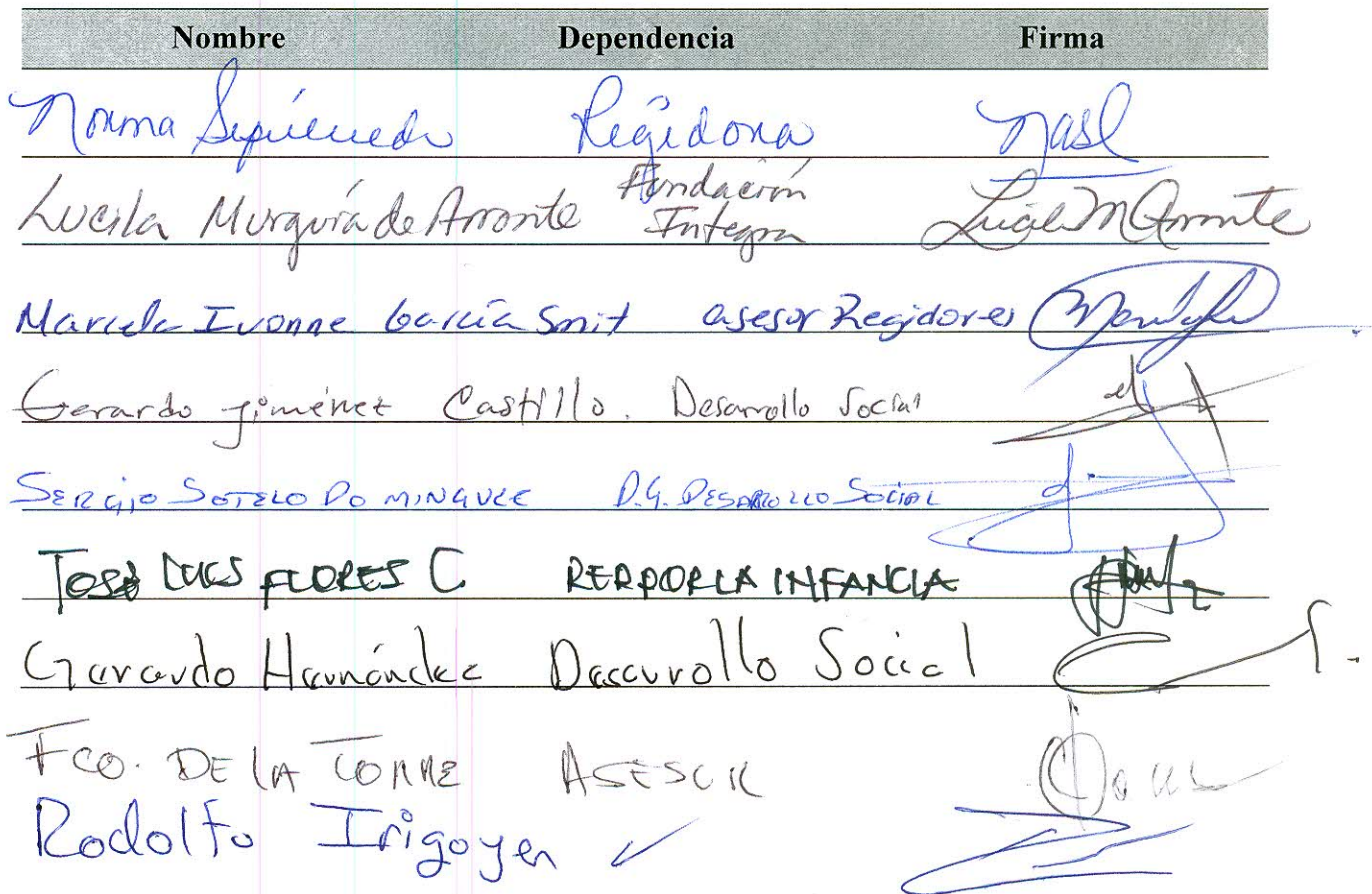 Nombre Dependencia Firma
Norma Sepúlveda Regidora
Lucila Murguía de Arronte Fundación Integra Lucila M Arronte
Marcela Ivonne García Smit asesor Regidores
Gerardo Jiménez Castillo. Desarrollo Social
SERGIO SOTELO DOMINGUEZ D.G. DESARROLLO SOCIAL
JOSÉ LUIS FLORES C RED POR LA INFANCIA
Gerardo Hernández Desarrollo Social
FCO. DE LA TORRE ASESOR
Rodolfo Irigoyen ✓